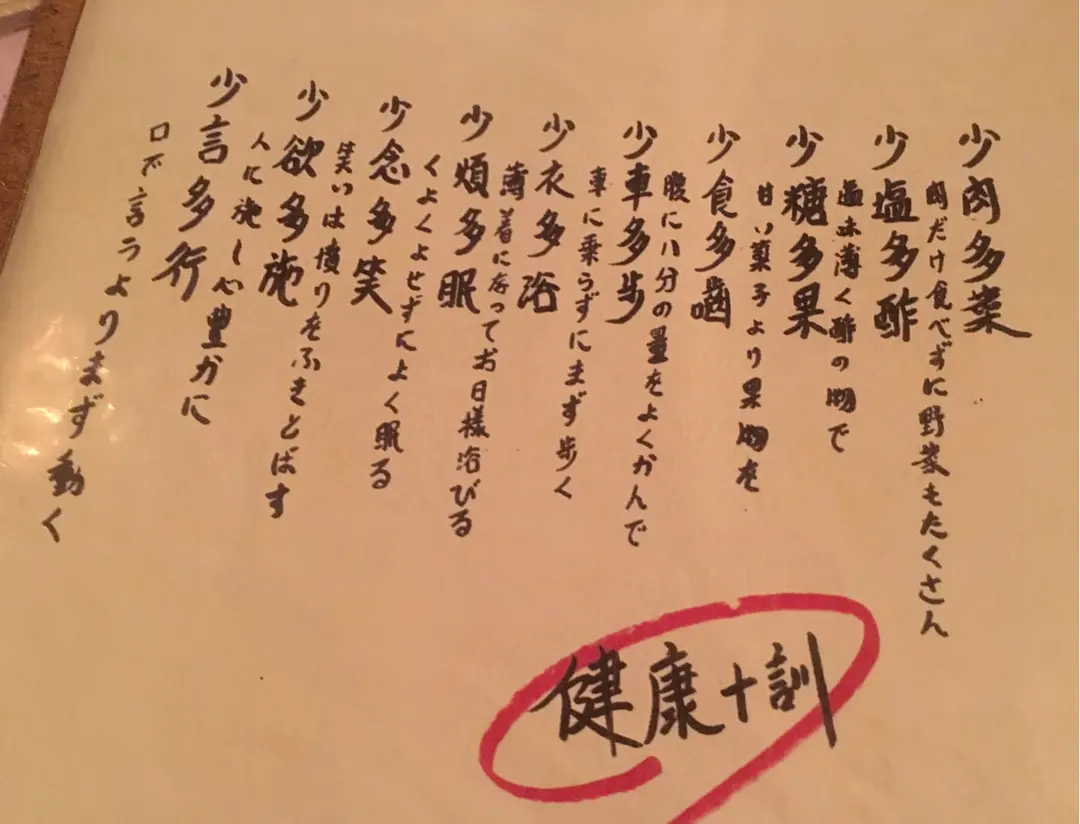 少肉多菜
肉だけ食べずに野菜もたくさん
少塩多酢
塩味薄く酢の物で
少糖多果
甘い菓子より果物を
少食多噛
腹に八分の量をよくかんで
少車多歩
車に乗らずにまず歩く
少衣多浴
薄着になってお日様浴びる
少煩多眠
くよくよせずによく眠る
少念多笑
笑いは憤りをふきとばす
少欲多施
人に施し心豊かに
少言多行
口で言うよりまず動く
健康十訓